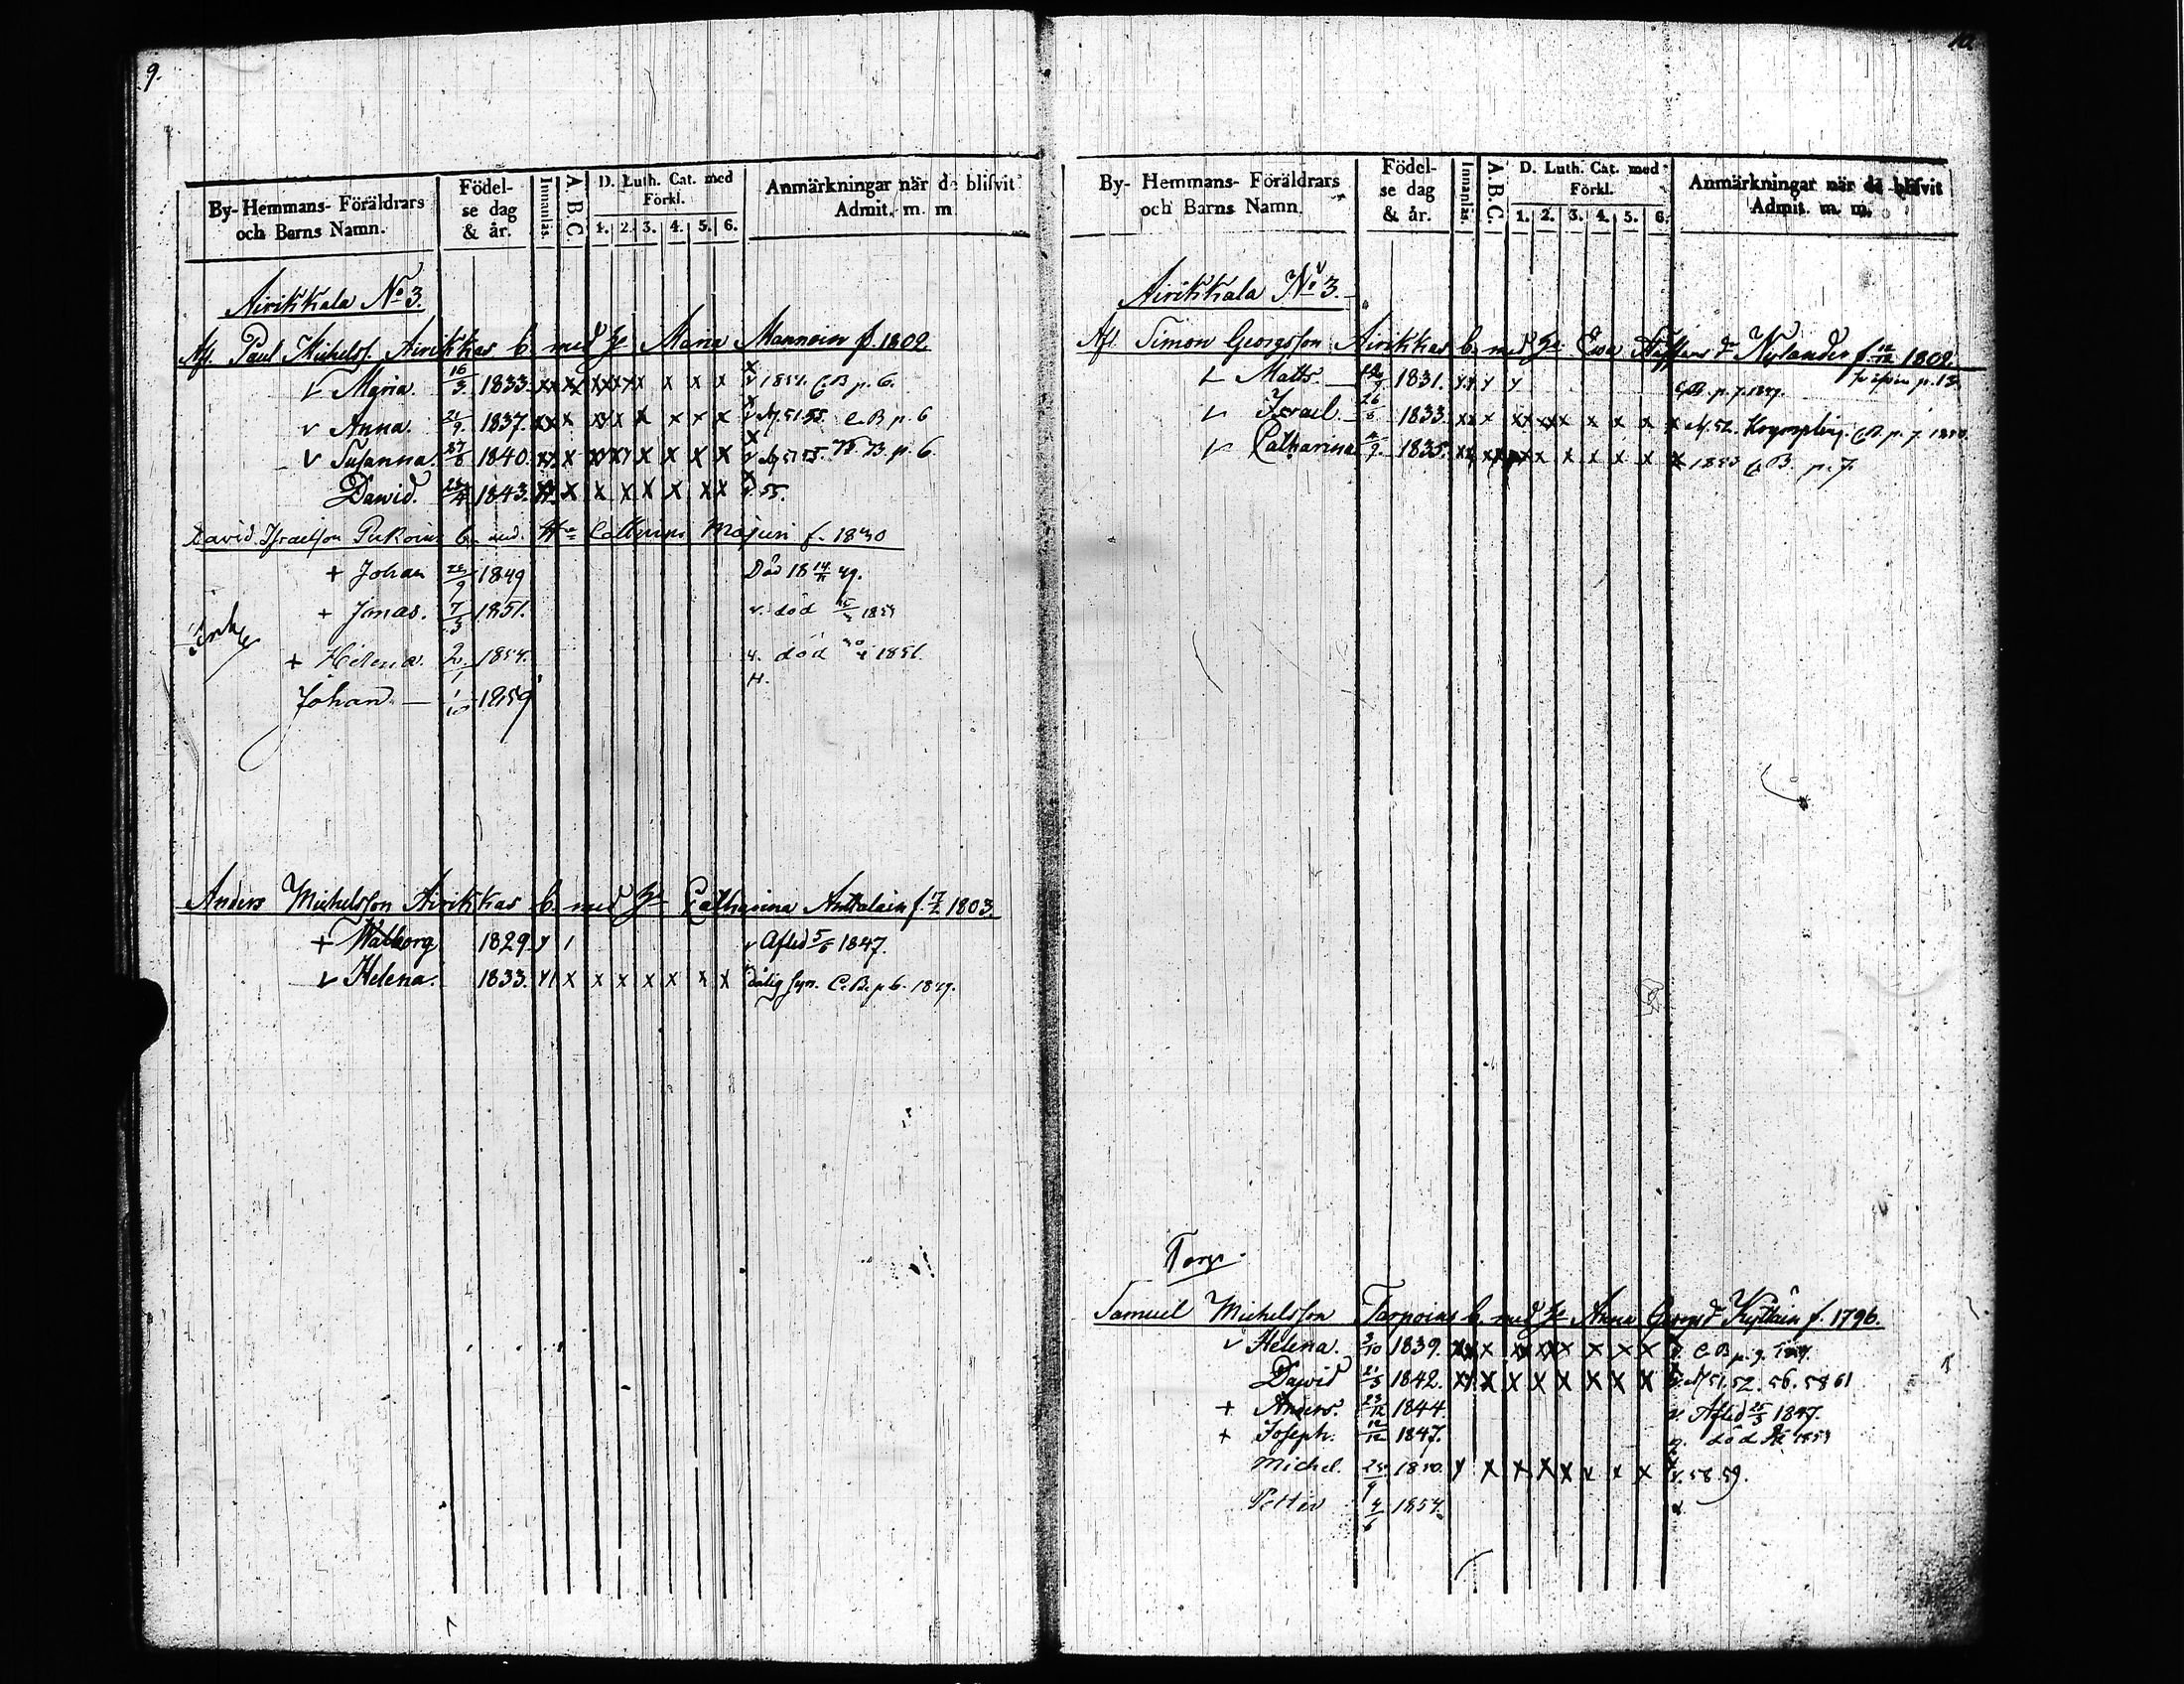 9.
By- Hemmans- Föräldrars och Barns Namn. Födelse dag & år. Innanläs. A.B.C. D. Luth. Cat. med Förkl. 1. 2. 3. 4. 5. 6. Anmärkningar när de blifvit Admit. m. m.
Airikkala No 3.
Afl. Paul Michelss. Airikkas b. med h. Maria Mannoin f. 1802
v Maria. 16/3 1833. xx x xxxx x x x x v 1851. C.B p. 6.
v Anna. 24/9. 1837. xxx x xx x x x x x v 51.55. C.B p. 6
v Susanna. 27/8 1840. xx x xxx x x x x v 51 55. B. p. 6.
Dawid. 1843. x x x x x x x x v. 55.
David Israelson b. med f. 1830
+ Johan 22/9 1849 Död 18 14/11 49.
+ Jonas. 7/3 1851. v. död 1853
Enka
+ Helena. 2/1 1854. v. död
Johan. — 1/10 1859
Anders Michelsson Airikkas b. med h. Catharina f. 17/2 1803.
+ Walborg 1829. y 1 v Afled 5/6 1847.
v Helena. 1833. y1 x x x x x x x dålig syn. C.B. p 6. 1849.
10
By- Hemmans- Föräldrars och Barns Namn. Födelse dag & år. Innanläs. A.B.C. D. Luth. Cat. med Förkl. 1. 2. 3. 4. 5. 6. Anmärkningar när de blifvit Admit. m. m.
Airikkala No 3.
Afl. Simon Georgsson Airikkas b. med h. Ewa Staffans d. Nylander f. 12/12 1802.
v Matts. 1831. y y y y C.B. p. 7. 1847. p. 13
v Israel. 26/8 1833. xx x xxxxx x x x x x 52. C.B p. 7. 1850.
v Catharina 4/9. 1835. x x 1853 C.B. p. 7.
Torp
Samuel Michelsson Torpoins b. med h. Anna Georgsd. f. 1796.
v Helena. 3/10 1839. xxx x xxxxx x x x x v. C.B p. 9.
Dawid 21/3 1842. xx x x x x x x x v. 51. 52. 56. 58 61
+ Anders. 23/12 1844. v. Afled 25/3 1847.
+ Joseph. 12/12 1847. död 1853
Michel. 25/9 1850. y x x x x v x x v. 58 59.
Petter 4/6 1854. v